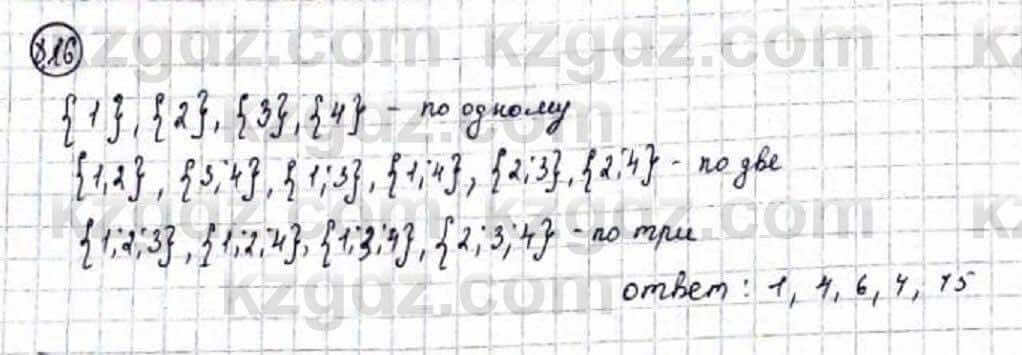 8.16
{1}, {2}, {3}, {4} - по одному
{1,2}, {3;4}, {1;3}, {1;4}, {2;3}, {2;4} - по две
{1;2;3}, {1;2;4}, {1;3;4}, {2;3;4} - по три
ответ: 1, 4, 6, 4, 15
kzgdz.com kzgdz.com
kzgdz.com
kzgdz.com kzgdz.com
kzgdz.com